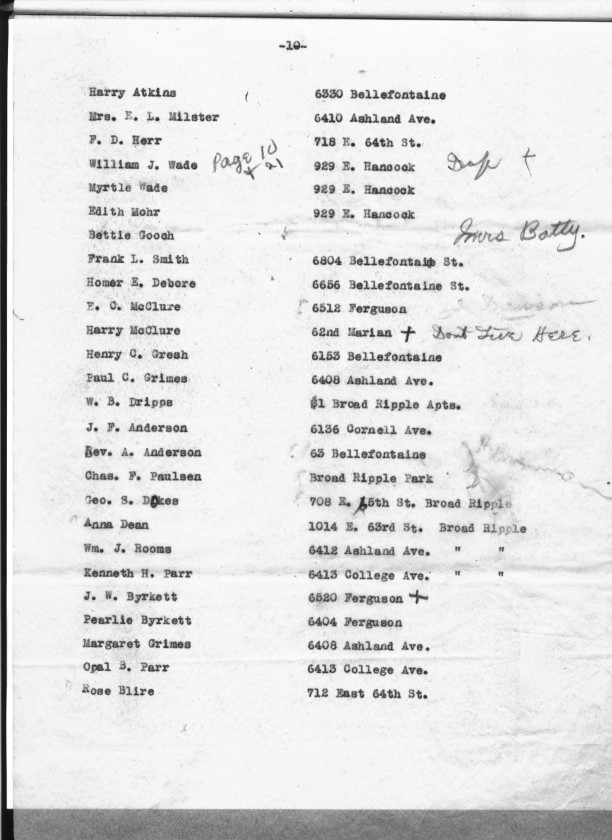 -10-
Harry Atkins 6330 Bellefontaine
Mrs. E. L. Milster 6410 Ashland Ave.
F. D. Herr 718 E. 64th St.
William J. Wade Page 10 929 E. Hancock
Myrtle Wade 929 E. Hancock
Edith Mohr 929 E. Hancock
Bettie Gooch Mrs Batty.
Frank L. Smith 6804 Bellefontaine St.
Homer E. Debore 6656 Bellefontaine St.
E. C. McClure 6512 Ferguson
Harry McClure 62nd Marian + Dont Live Here.
Henry C. Gresh 6153 Bellefontaine
Paul C. Grimes 6408 Ashland Ave.
W. B. Dripps #1 Broad Ripple Apts.
J. F. Anderson 6136 Cornell Ave.
Rev. A. Anderson 63 Bellefontaine
Chas. F. Paulsen Broad Ripple Park
Geo. S. Dokes 708 E. 65th St. Broad Ripple
Anna Dean 1014 E. 63rd St. Broad Ripple
Wm. J. Rooms 6412 Ashland Ave. " "
Kenneth H. Parr 6413 College Ave. " "
J. W. Byrkett 6520 Ferguson +
Pearlie Byrkett 6404 Ferguson
Margaret Grimes 6408 Ashland Ave.
Opal B. Parr 6413 College Ave.
Rose Blire 712 East 64th St.